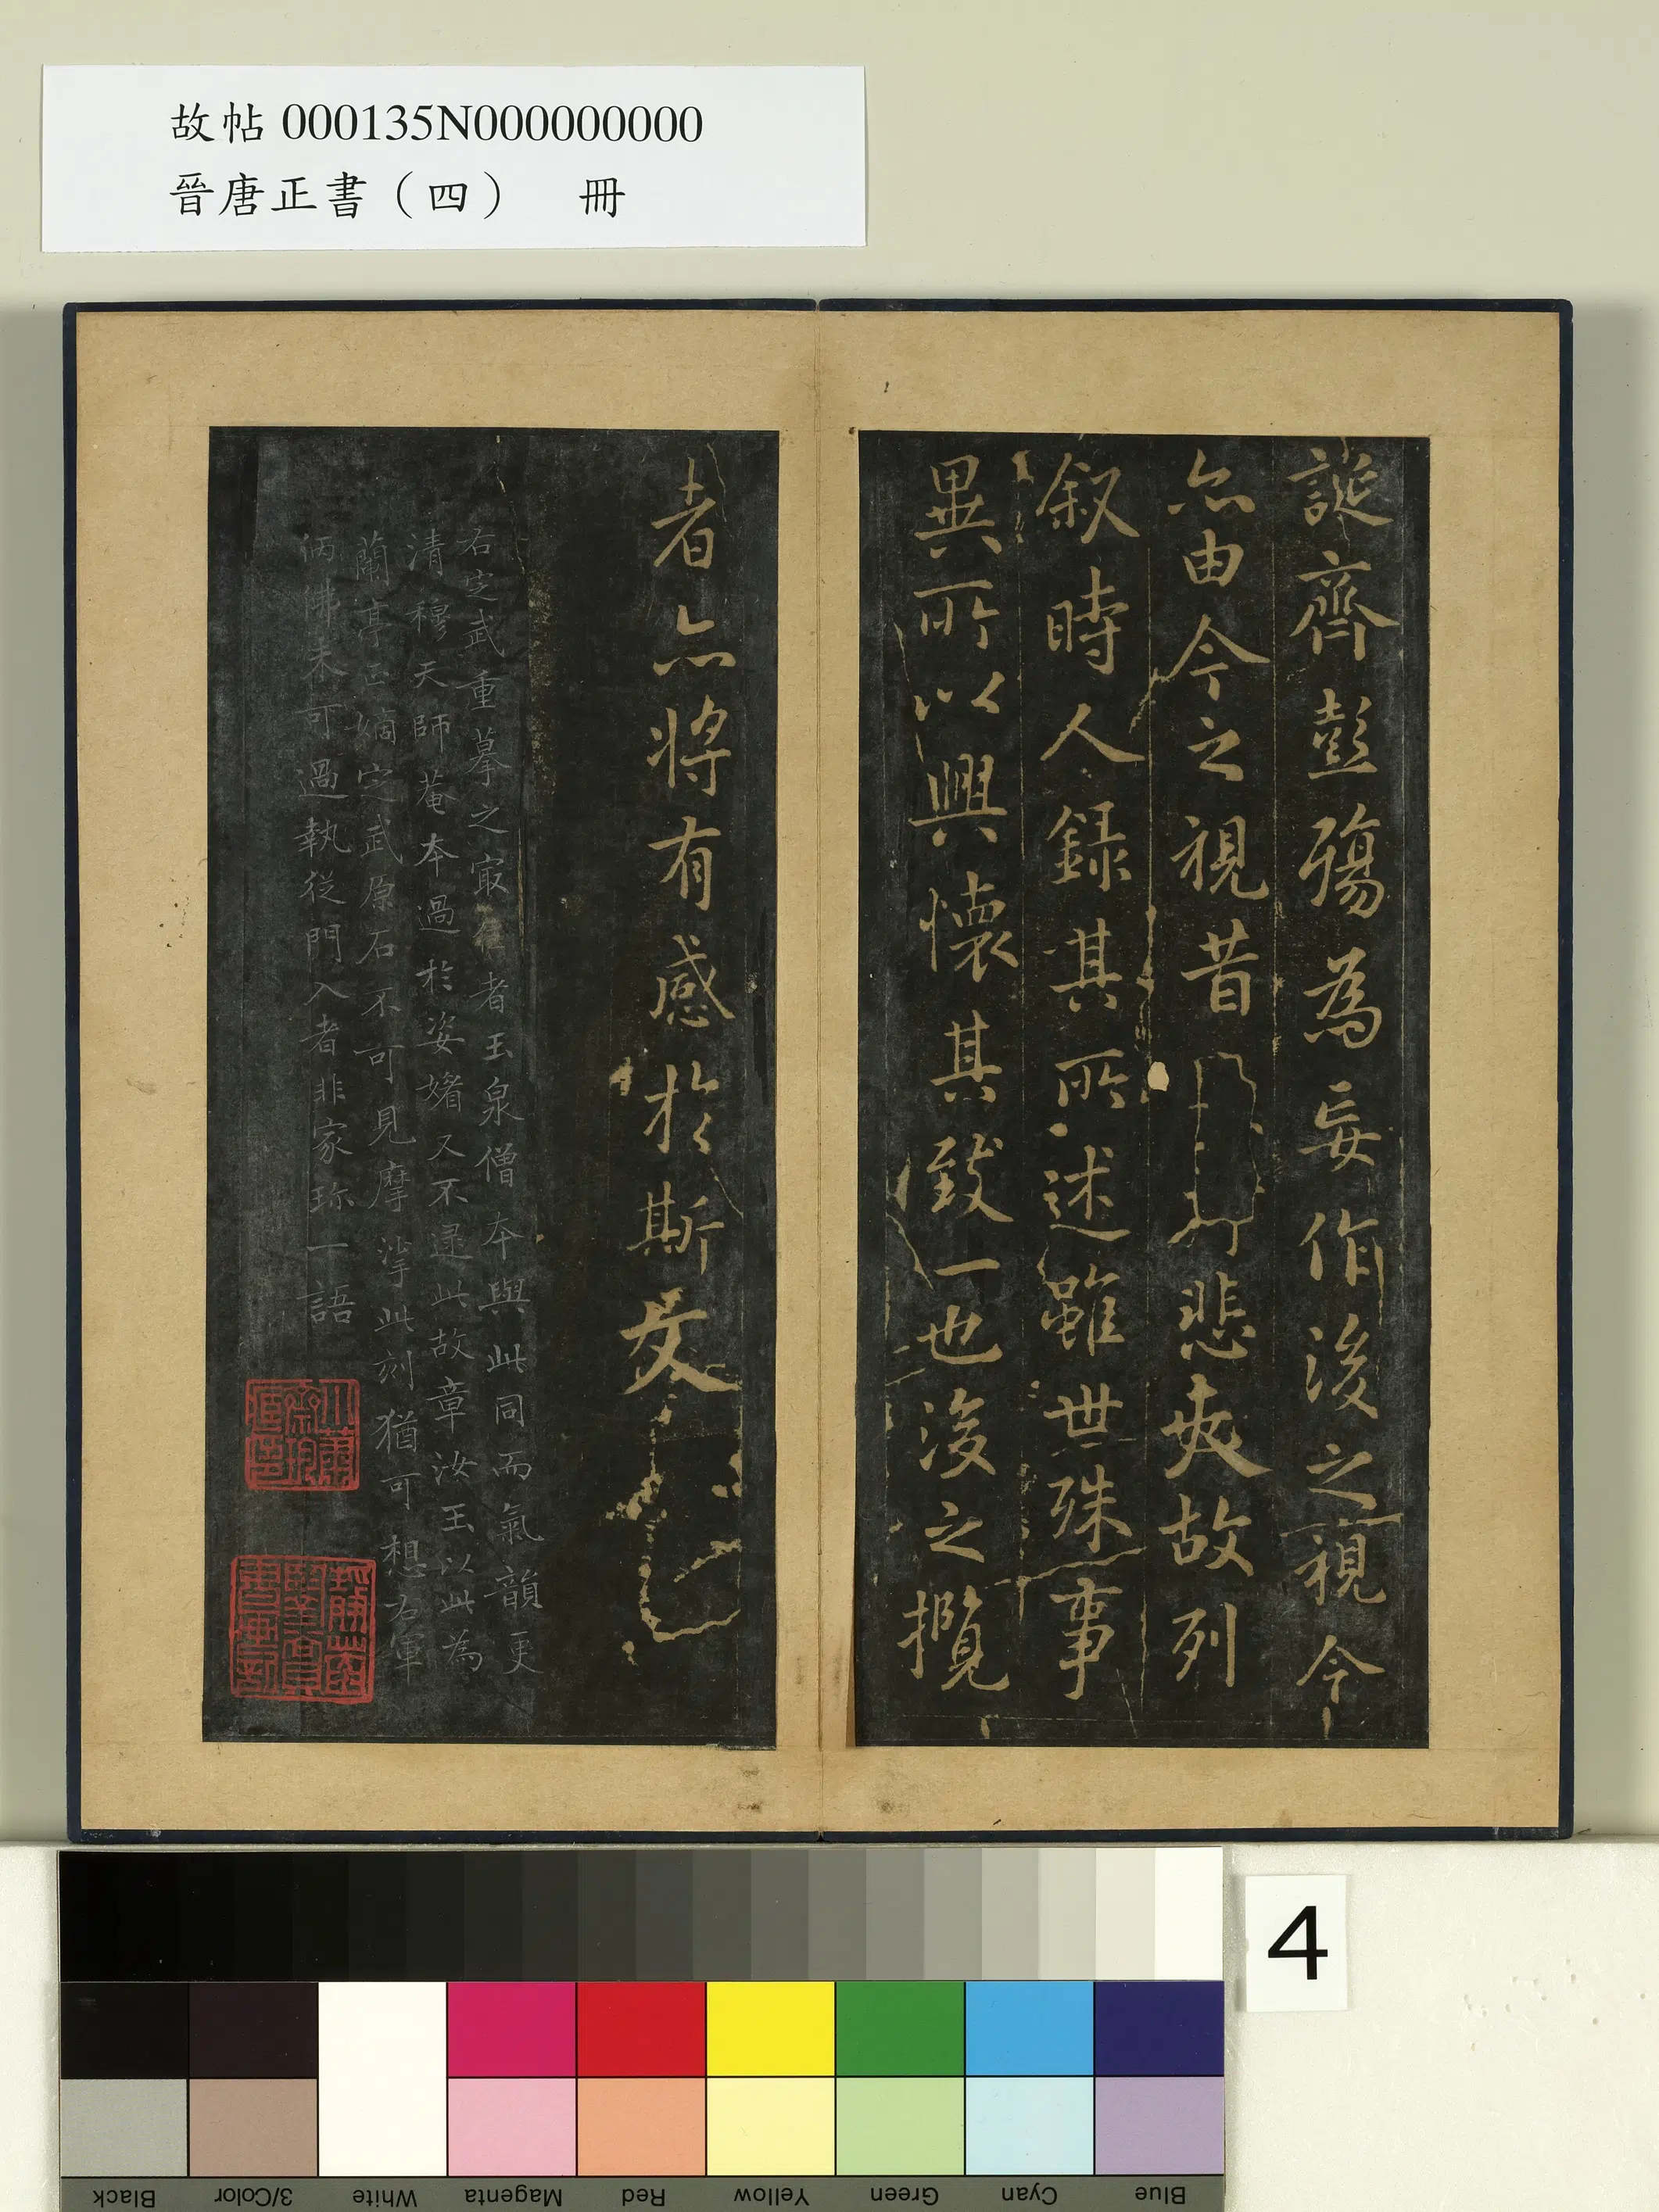 故帖000135N000000000
晉唐正書（四）　冊
誕齊彭殤為妄作後之視今
亦由今之視昔
悲夫故列
叙時人錄其所述雖世殊事
異所以興懷其致一也後之攬
者亦將有感於斯文
右定武重摹之冣佳者玉泉僧本與此同而氣韻更
清穆天師菴本過於姿媚又不逮此故章汝玉以此為
蘭亭正嫡定武原石不可見摩挲此刻猶可想右軍
仿佛未可過執從門入者非家珎一語
4
Black
3/Color
White
Magenta
Red
Yellow
Green
Cyan
Blue